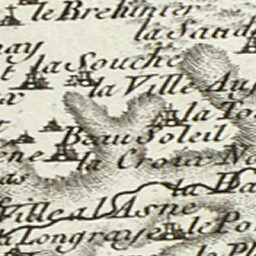 le Brehinier
la Sauda
nay
la Souche
la Ville Aus
la To
Beau Soleil
la Croux No
ene
as
la Ha
Ville al'Asne
le Po
Longraye
le Pl